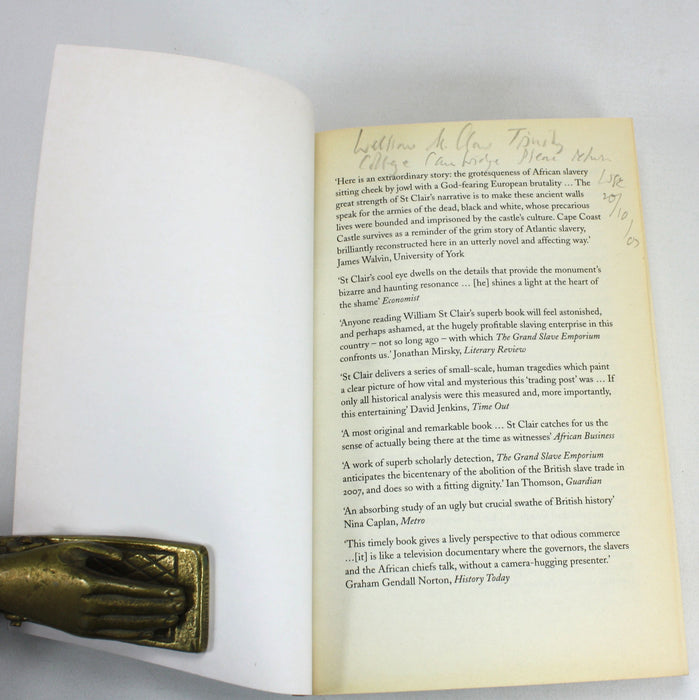 William St Clair Trinity
College Cambridge Please return
LSE
20/10/07
‘Here is an extraordinary story: the grotesqueness of African slavery
sitting cheek by jowl with a God-fearing European brutality … The
great strength of St Clair’s narrative is to make these ancient walls
speak for the armies of the dead, black and white, whose precarious
lives were bounded and imprisoned by the castle’s culture. Cape Coast
Castle survives as a reminder of the grim story of Atlantic slavery,
brilliantly reconstructed here in an utterly novel and affecting way.’
James Walvin, University of York
‘St Clair’s cool eye dwells on the details that provide the monument’s
bizarre and haunting resonance … [he] shines a light at the heart of
the shame’ Economist
‘Anyone reading William St Clair’s superb book will feel astonished,
and perhaps ashamed, at the hugely profitable slaving enterprise in this
country – not so long ago – with which The Grand Slave Emporium
confronts us.’ Jonathan Mirsky, Literary Review
‘St Clair delivers a series of small-scale, human tragedies which paint
a clear picture of how vital and mysterious this ‘trading post’ was … If
only all historical analysis were this measured and, more importantly,
this entertaining’ David Jenkins, Time Out
‘A most original and remarkable book … St Clair catches for us the
sense of actually being there at the time as witnesses’ African Business
‘A work of superb scholarly detection, The Grand Slave Emporium
anticipates the bicentenary of the abolition of the British slave trade in
2007, and does so with a fitting dignity.’ Ian Thomson, Guardian
‘An absorbing study of an ugly but crucial swathe of British history’
Nina Caplan, Metro
‘This timely book gives a lively perspective to that odious commerce
…[it] is like a television documentary where the governors, the slavers
and the African chiefs talk, without a camera-hugging presenter.’
Graham Gendall Norton, History Today